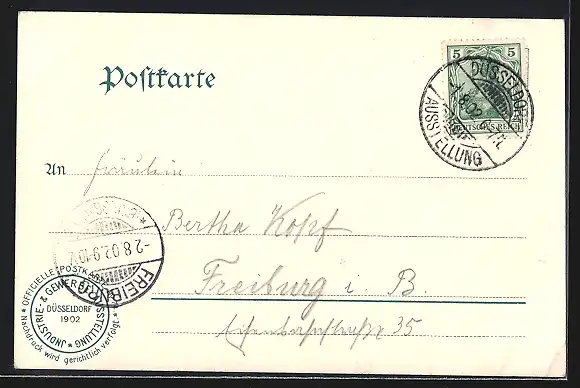 Postkarte
5 5
DEUTSCHES REICH
DÜSSELDORF
1.8.02. 6-7N.
AUSSTELLUNG
An Fräulein
Bertha Kopf
Freiburg i. B.
Eisenbahnstraße 35
-2.8.02.9-10V.
FREIBURG
* OFFICIELLE POSTKARTE *
JNDUSTRIE- & GEWERBE AUSSTELLUNG *
DÜSSELDORF
1902
Nachdruck wird gerichtlich verfolgt